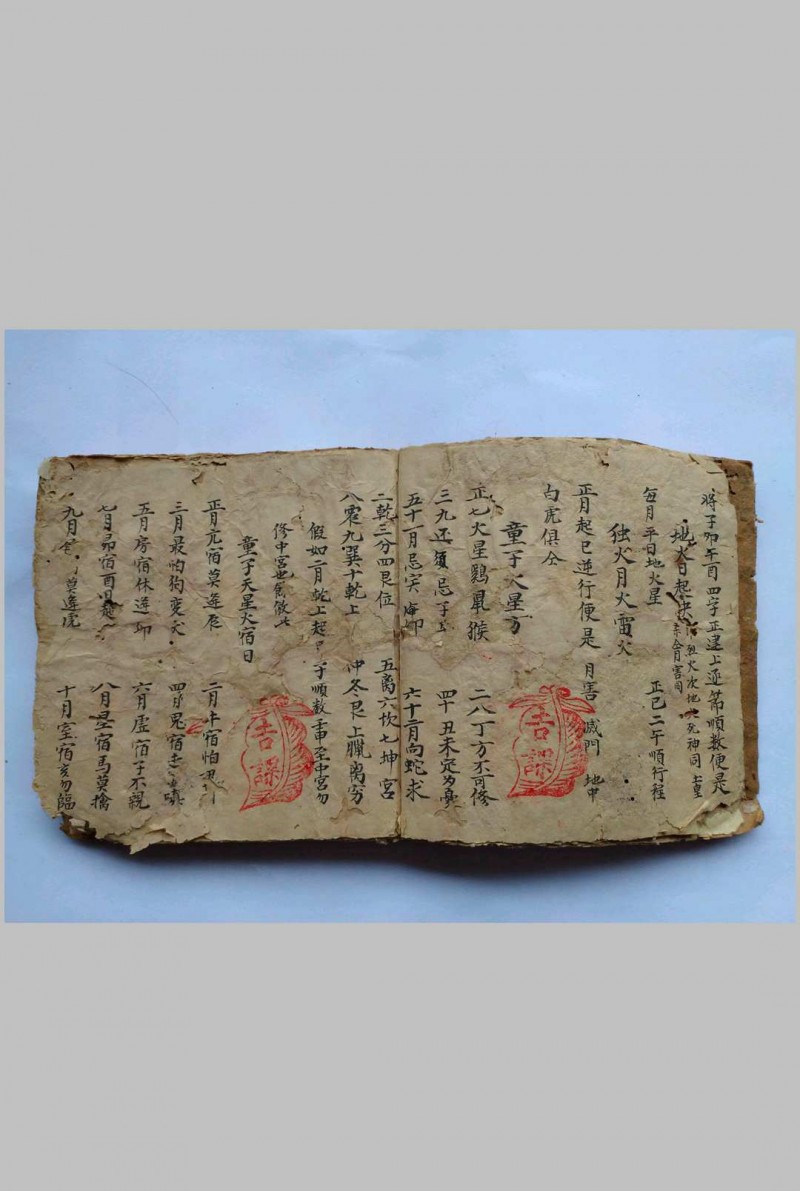 將子卯午酉四字正逆上逆第順數便是
地火日起
烈火次地 死神同 土皇
月害同
每月平日地火星 正巳二午順行程
独火月火雷火
正月起巳逆行便是 月害 滅門 地中
白虎俱仝
童子火星方
正七火星鷄鼠猴 二八丁方不可修
三九还須忌子 四十丑未定為
五十一月忌寅卯 六十二月向蛇求
二乾三分四艮位 五离六坎七坤宮
八震九巽十乾上 仲冬艮上臘离穷
假如二月乾上起 子順数 至中宮勿
修中宮也 餘倣此
童子天星火宿日
正月亢宿莫逢辰 二月牛宿怕
三月最怕狗变犬 四月
五月房宿休逢卯 六月虛宿子不親
七月昴宿酉 八月星宿馬莫擒
九月 莫逢虎 十月室宿亥勿臨
吉課
吉課